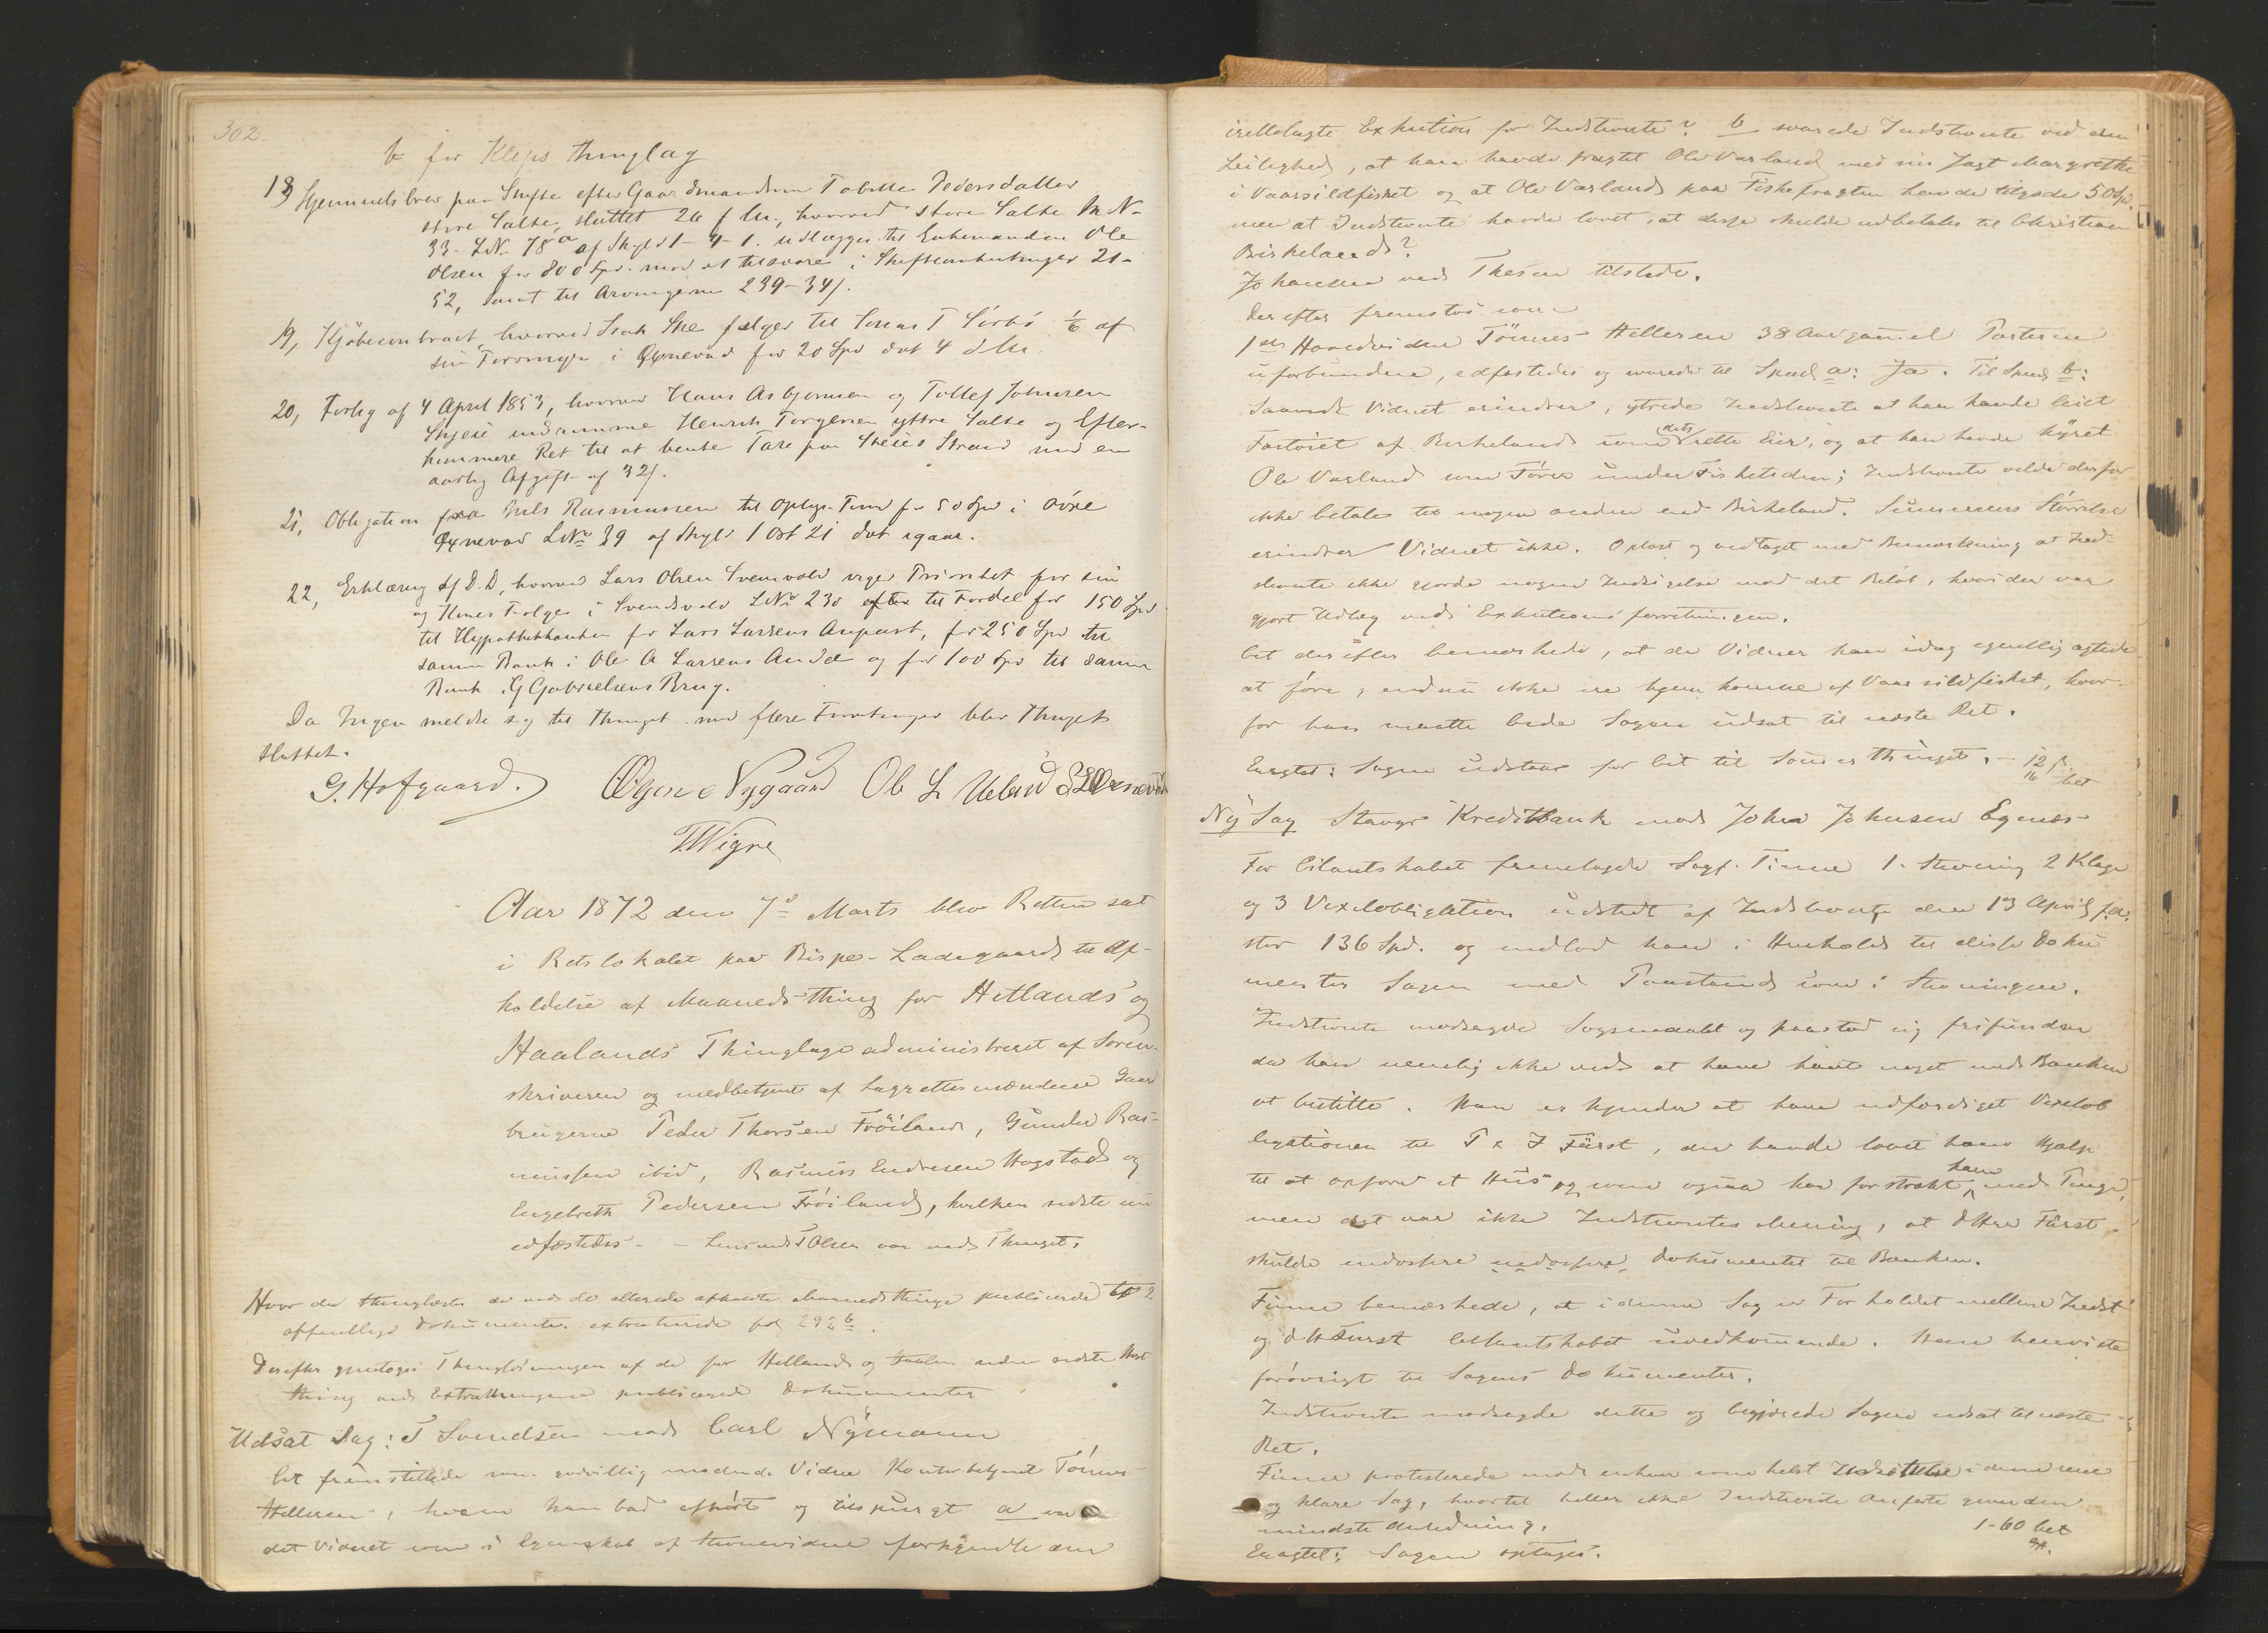 302.
b for Kleps thinglag
18) Hjemmelsbrev paa Skifte efter Gaardmandsen Tobitha Pedersdatter
store Salte, sluttet 26 f. M., hvorved store Salte M N-
33- L.No 78a af Skyld 1-4-1. udlægges til Enkemanden Ole
Olsen for 800 Spd. mod at tilsvare i Skifteomkostninger 21-
52, samt til Arvingerne 239-34 s.
19, Kjöbecontract, hvorved Isak Ske sælger til Jonas T Sörbö 1/6 af
sin Torvmyr i Øxnevad for 20 Spd dat 4 d M.
20, Forlig af 4 April 1853, hvorved Hans Asbjornsen og Tollef Johnsen
Skjeie indrømme Henrik Torgersen yttre Salte og Efter-
kommere Ret til at hente Tare paa Skeies Strand mod en
aarlig Afgift af 32 s.
21, Obligation fra Nils Rasmussen til Oplys. Fond for 50 Spd i övre
Øxnevad LNo 39 af Skyld 1 Ort 21 dat igaar.
22, Erklæring af D. D, hvorved Lars Olsen Svenvold viger Prioritet for sin
og Kones Folge i Svendsvold LNo 230 efter til Fordel for 150 Spd
til Hypothekbanken for Lars Larsens Anpart, for 250 Spd til
samme Bank i Ole A Larsens Andel og for 100 Spd til samme
Bank i G Gabrielsens Brug.
Da Ingen meldte sig til thinget med flere Forretninger blev Thinget
sluttet.
G. Hofgaard. Øgene Nygaard Ole L Ueland S Øxnevad
T Wigre
Aar 1872 den 7de Marts blev Retten sat
i Retslokalet paa Bispe-Ladegaard til Af-
holdelse af Maanedsthing for Hetlands og
Haalands Thinglage administreret af Soren-
skriveren og medbetjent af Lagrettesmændene Gaard
brugerne Peder Thorsen Fröiland, Gunder Ras-
mussen ibid, Rasmus Endresen Hogstad og
Engebreth Pedersen Fröiland, hvilken sidste nu
edfæstedes. - Lensmd T Olsen var ved Thinget.
Hvor da thinglæstes de ved de allerede afholdte Maanedsthinge publicerede to 2
offentlige Dokumenter extraherede fol 292b.
Derefter gjentoges Thinglæsningen af de for Hetlands og Haalan siden sidste Høst
thing ved Extrathingene publicerede Dokumenter
Udsat Sag: T Svendsen mod Carl Nÿmann
Cit fremstillede som godvillig mødende Vidne Kontorbetjent Tönnes
Helleren, hvem han bad afhört og tilspurgt a var
det Vidnet som i Egenskab af Stevnevidne forkyndte den
irettelagte Exkution for Indstevnte? b svarede Indstevnte ved den
Leilighed, at han havde fragtet Ole Varland med sin Jagt Margrethe
i Vaarsildfisket og at Ole Varland paa Fiskefragten havde tilgode 50 Spd.
men at Indstevnte havde lovet, at disse skulde udbetales til Christian
Birkeland?
Johansen ved Thesen tilstede.
Derefter fremstod som
1ste Hovedvidne Tönnes Helleren 38 Aar gammel Parterne
uforbunden, edfæstedes og svarede til Spml a: Ja. Til Spml b:
Saavidt Vidnet erindrer, ytrede Indstevnte at han havde leiet
Fartöiet af Birkeland som dets rette Eier, og at han havde hyret
Ole Varland som Förer under Fisketiden; Indstevnte vilde derfor
ikke betale til nogen anden end Birkeland. Summens Störrelse
erindrer Vidnet ikke. Oplæst og vedtaget med Bemærkning at Ind-
stevnte ikke gjorde nogen Indsigelse mod det Belöb, hvori der var
gjort Udlæg ved Exkutionsforretningen.
Cit derefter bemærkede, at de Vidner han idag egentlig agtede
at före, endnu ikke ere hjemkomne af Vaarsildfisket, hvor-
for han maatte bede Sagen udsat til næste Ret.
Eragtet: Sagen udstaar for Cit til Sommerthinget. - 12 s.
16 bet
Ny Sag Stavgr Kreditbank mod John Johnsen Egenæs
For Citantskabet fremlagde Sagf. Finne 1. Stevning 2 Klage
og 3 Vexelobligation udstedt af Indstevnte den 13 April f. A.
stor 136 Spd. og indlod han i Henhold til disse Doku
menter Sagen med Paastand som i Stevningen.
Indstevnte modsagde Sögsmaalet og paastod sig frifunden
da han nemlig ikke ved at have havt noget med Banken
at bestille. Han erkjender at have udfærdiget Vexelob
ligationen til P & J Fürst, der havde lovet ham Hjelp
til at opföre et Hus og som ogsaa har forstrakt ham med Penge,
men det var ikke Indstevntes Mening, at dHrr Fürst
skulde endossere endossere Dokumentet til Banken.
Finne bemærkede, at i denne Sag er Forholdet mellem Indst
og d H Fürst Citantskabet uvedkommende. Han henviste
forövrigt til Sagens Dokumenter.
Indstevnte modsagde dette og begjærede Sagen udsat til næste
Ret.
Finne protesterede mod enhver somhelst Udsættelse i denne rene
og klare Sag, hvortil heller ikke Indstevnte anförte genne den
mindste Anledning.
1-60 bet
Eragtet: Sagen optages.